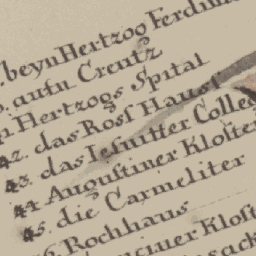 beyn Hertzog Ferdin
autu Creutz
Hertzogs Spital
42. das Ross Hauss
43. das Jesuitter Colleg
44 Augustiner Kloster
45. die Carmeliter
Rochhaus
ciner Klost